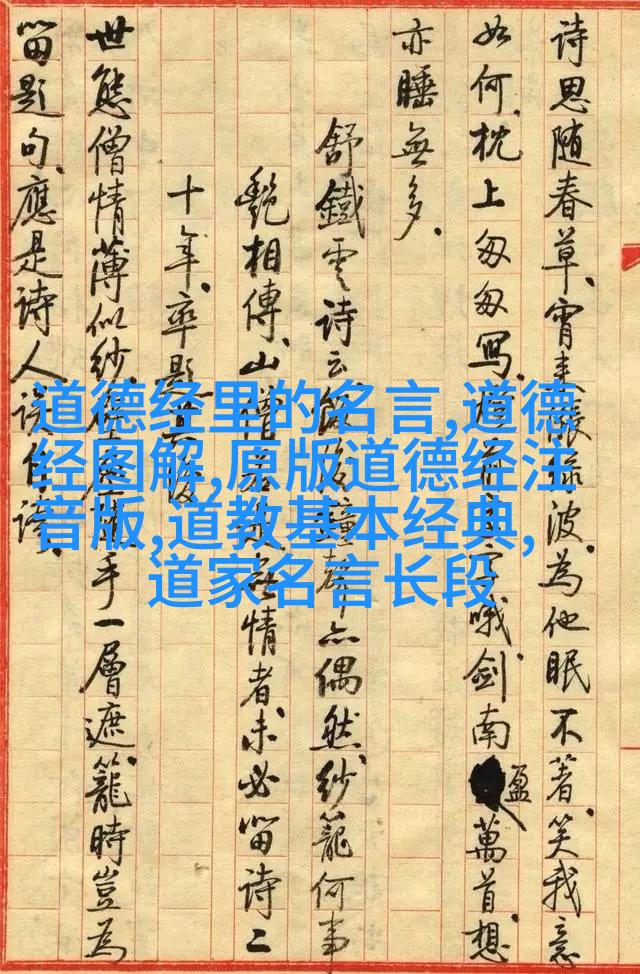 诗思随春草、宵来涨绿波、为他眠不著、笑我意
如何、枕上匆匆写、前字哦、剑南盈萬首、想
亦睡無多.
舒鐵雲诗云、後鐘聲亦偶然、纱籠何事
艷相傳、山僧情者、未必留诗二
十年、率題其後
世態僧情薄似纱、手一層遮、籠時豈為
留題句、應是诗人誤自
道德经里的名言,道德
经图解,原版道德经注
音版,道教基本经典,
道家名言长段